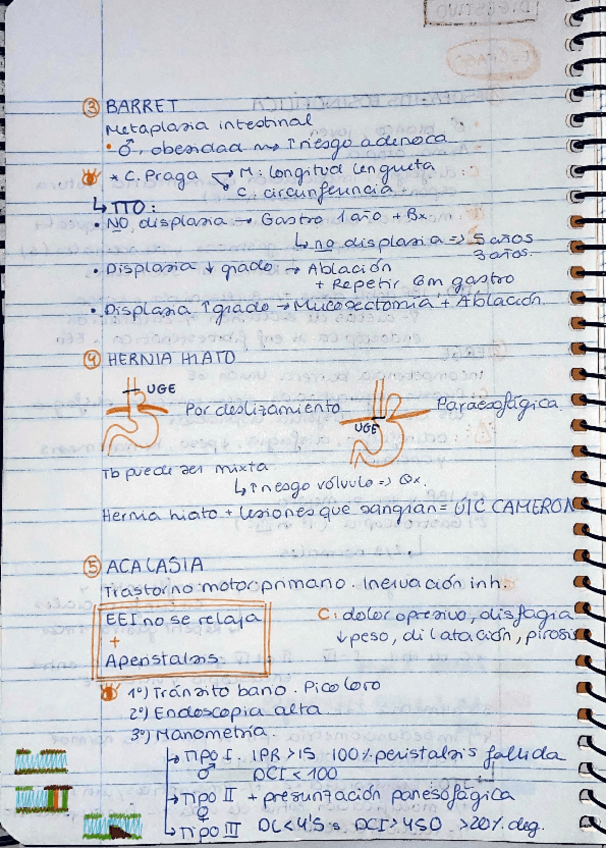 DIGESTIVO
ESÓFAGO
③ BARRET
Metaplasia intestinal
• ♂, obesidad → ↑ riesgo adenoca
* C. Praga → M: longitud lengueta
C: circunferencia
↳ TTO:
• NO displasia → Gastro 1 año + Bx.
↳ no displasia => 5 años
3 años.
• Displasia ↓ grado → Ablación
+ Repetir 6m gastro
• Displasia ↑ grado → Mucosectomia + Ablación
④ HERNIA HIATO
UGE
Por deslizamiento
UGE
Paraesofágica.
Tb puede ser mixta
↳ ↑ riesgo vólvulo => Qx.
Hernia hiato + lesiones que sangran = ÚLC CAMERON
⑤ ACALASIA
Trastorno motor primario. Inervación inh.
EEI no se relaja
+
Aperistalsis
C: dolor opresivo, disfagia
↓ peso, dilatación, pirosis
1º) Tránsito bario. Pico loro
2º) Endoscopia alta
3º) Manometría.
↳ TIPO I IPR >15 100% peristalsis fallida
♂ DCI < 100
↳ TIPO II + presurización panesofágica
♀
↳ TIPO III DL < 4'5 s DCI > 450 >20% deg.